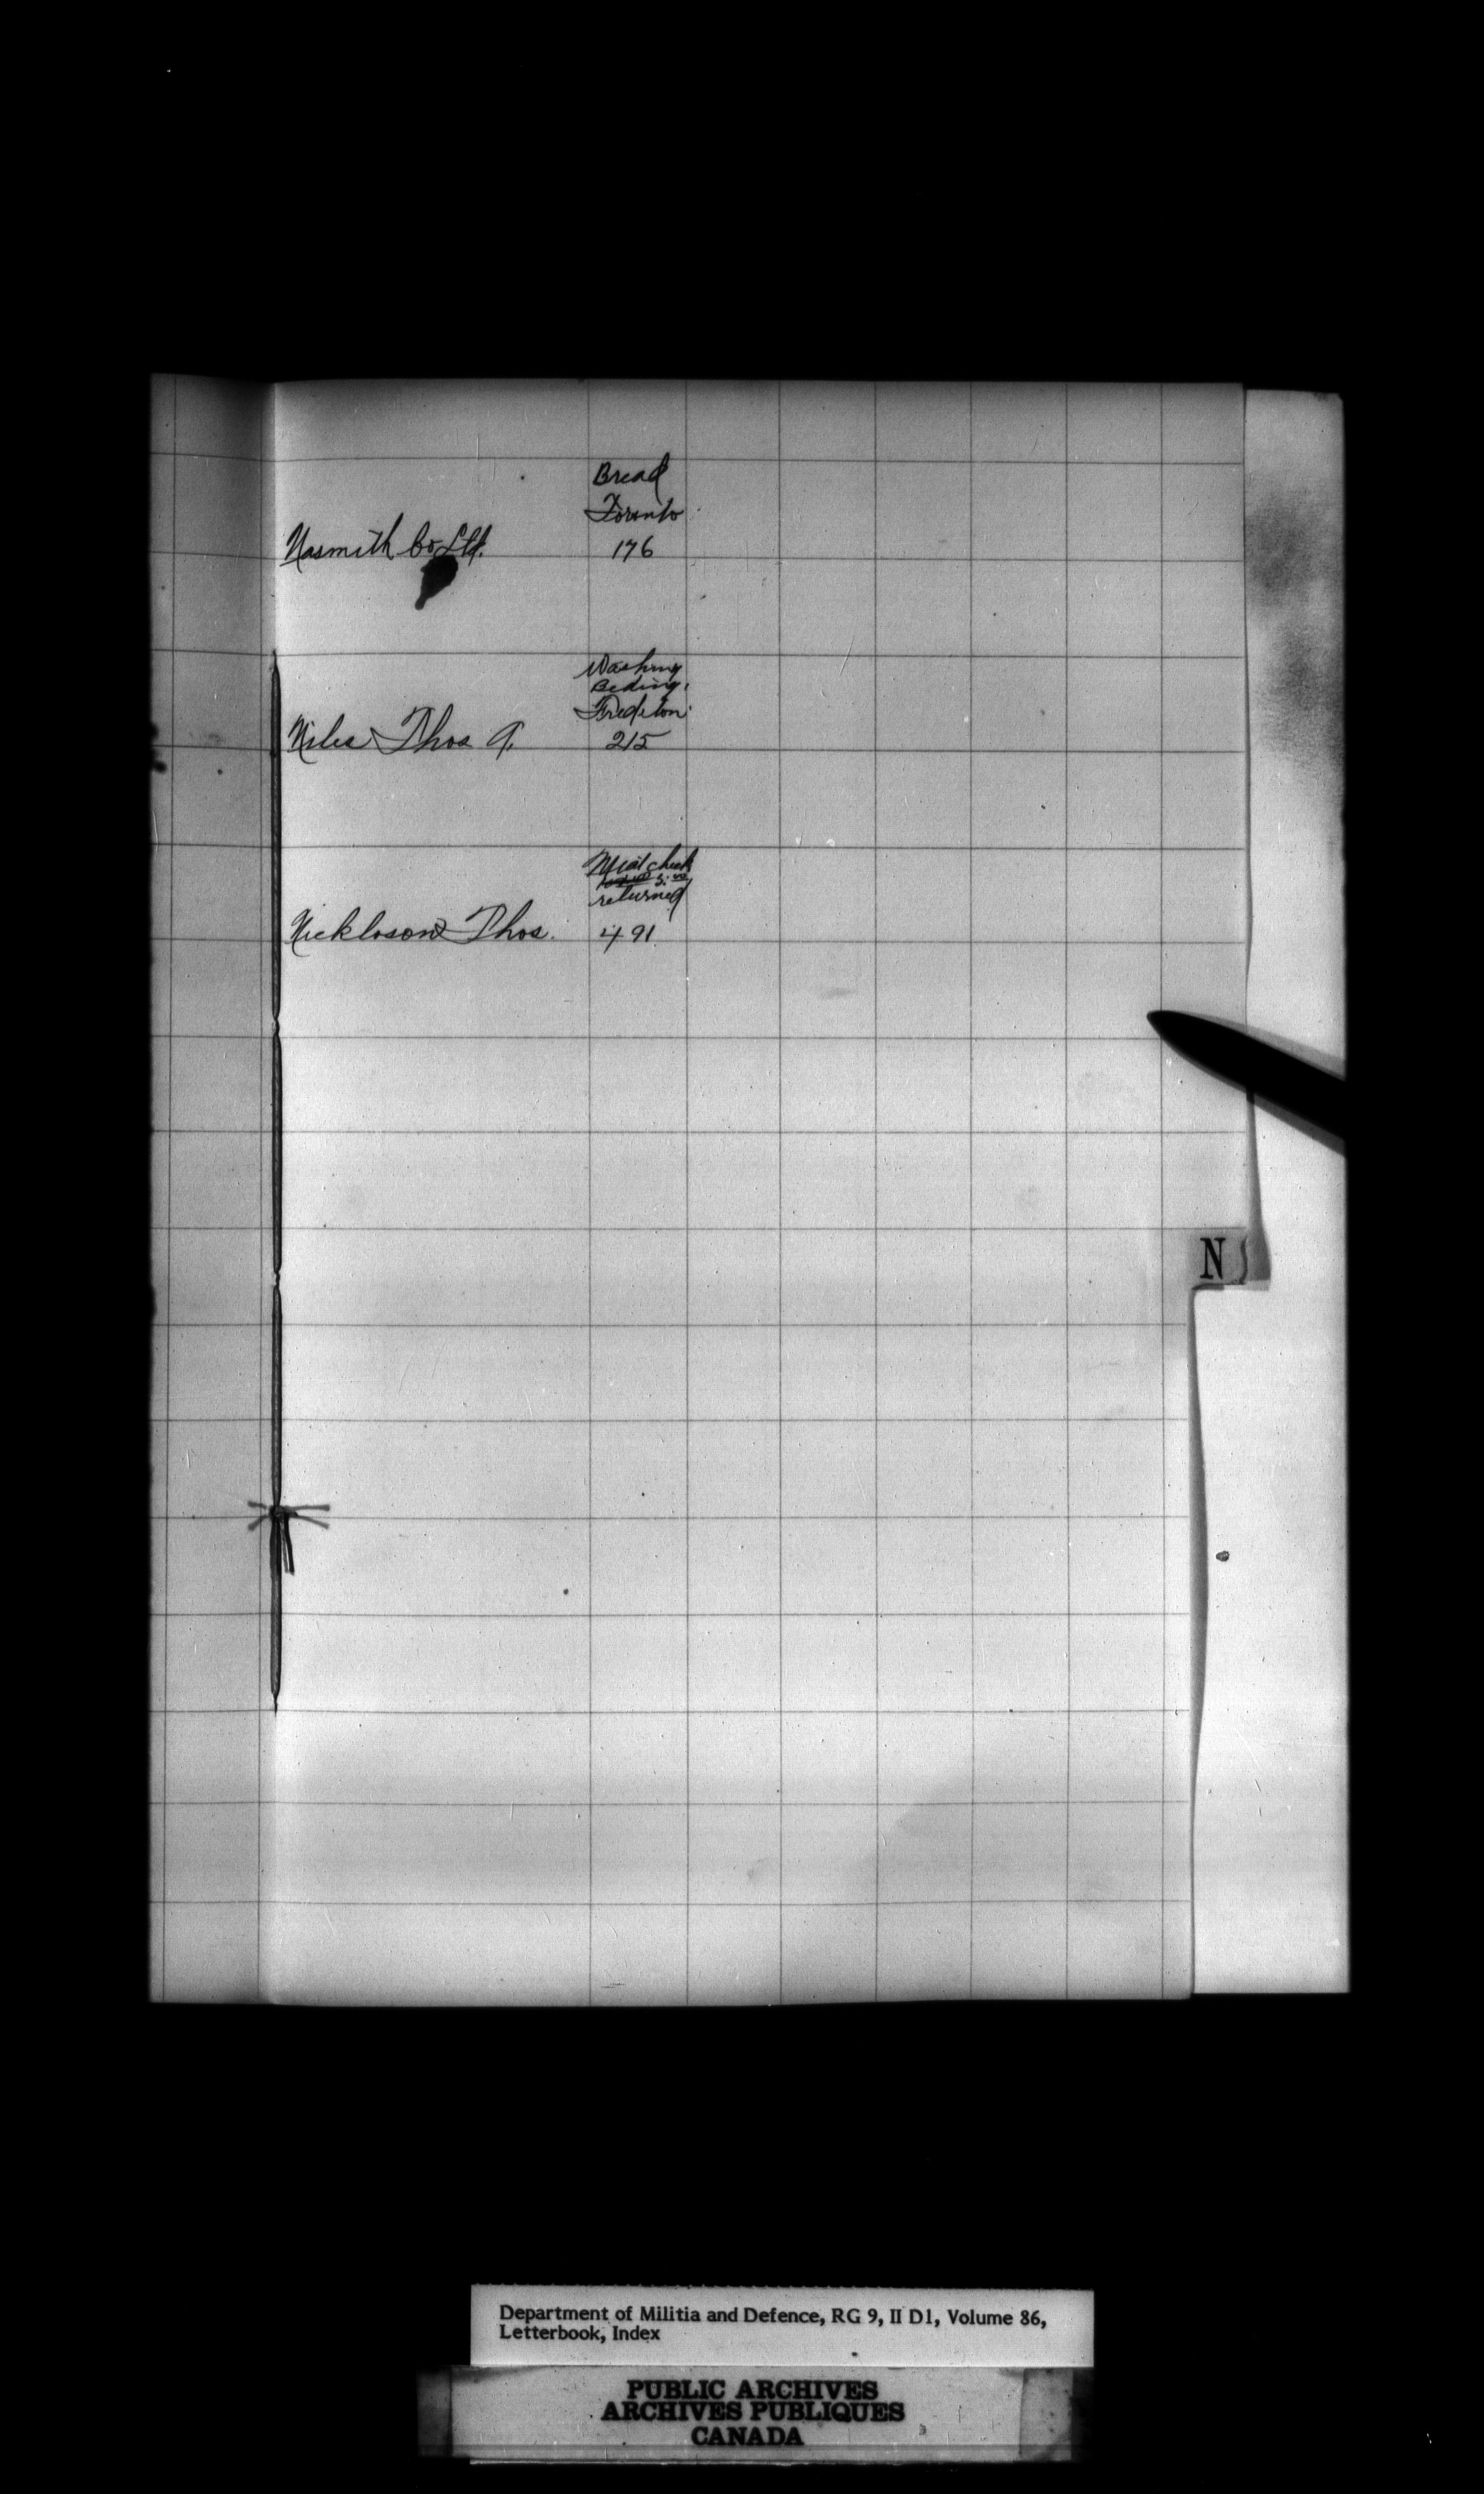 Bread
Toronto
Nasmith Co Ltd. 176
Washing
Beding.
Fredeton
Niles Thos A. 215
Meat check
returned
Nickloson Thos. 491
N
Department of Militia and Defence, RG 9, II D1, Volume 86,
Letterbook, Index
PUBLIC ARCHIVES
ARCHIVES PUBLIQUES
CANADA